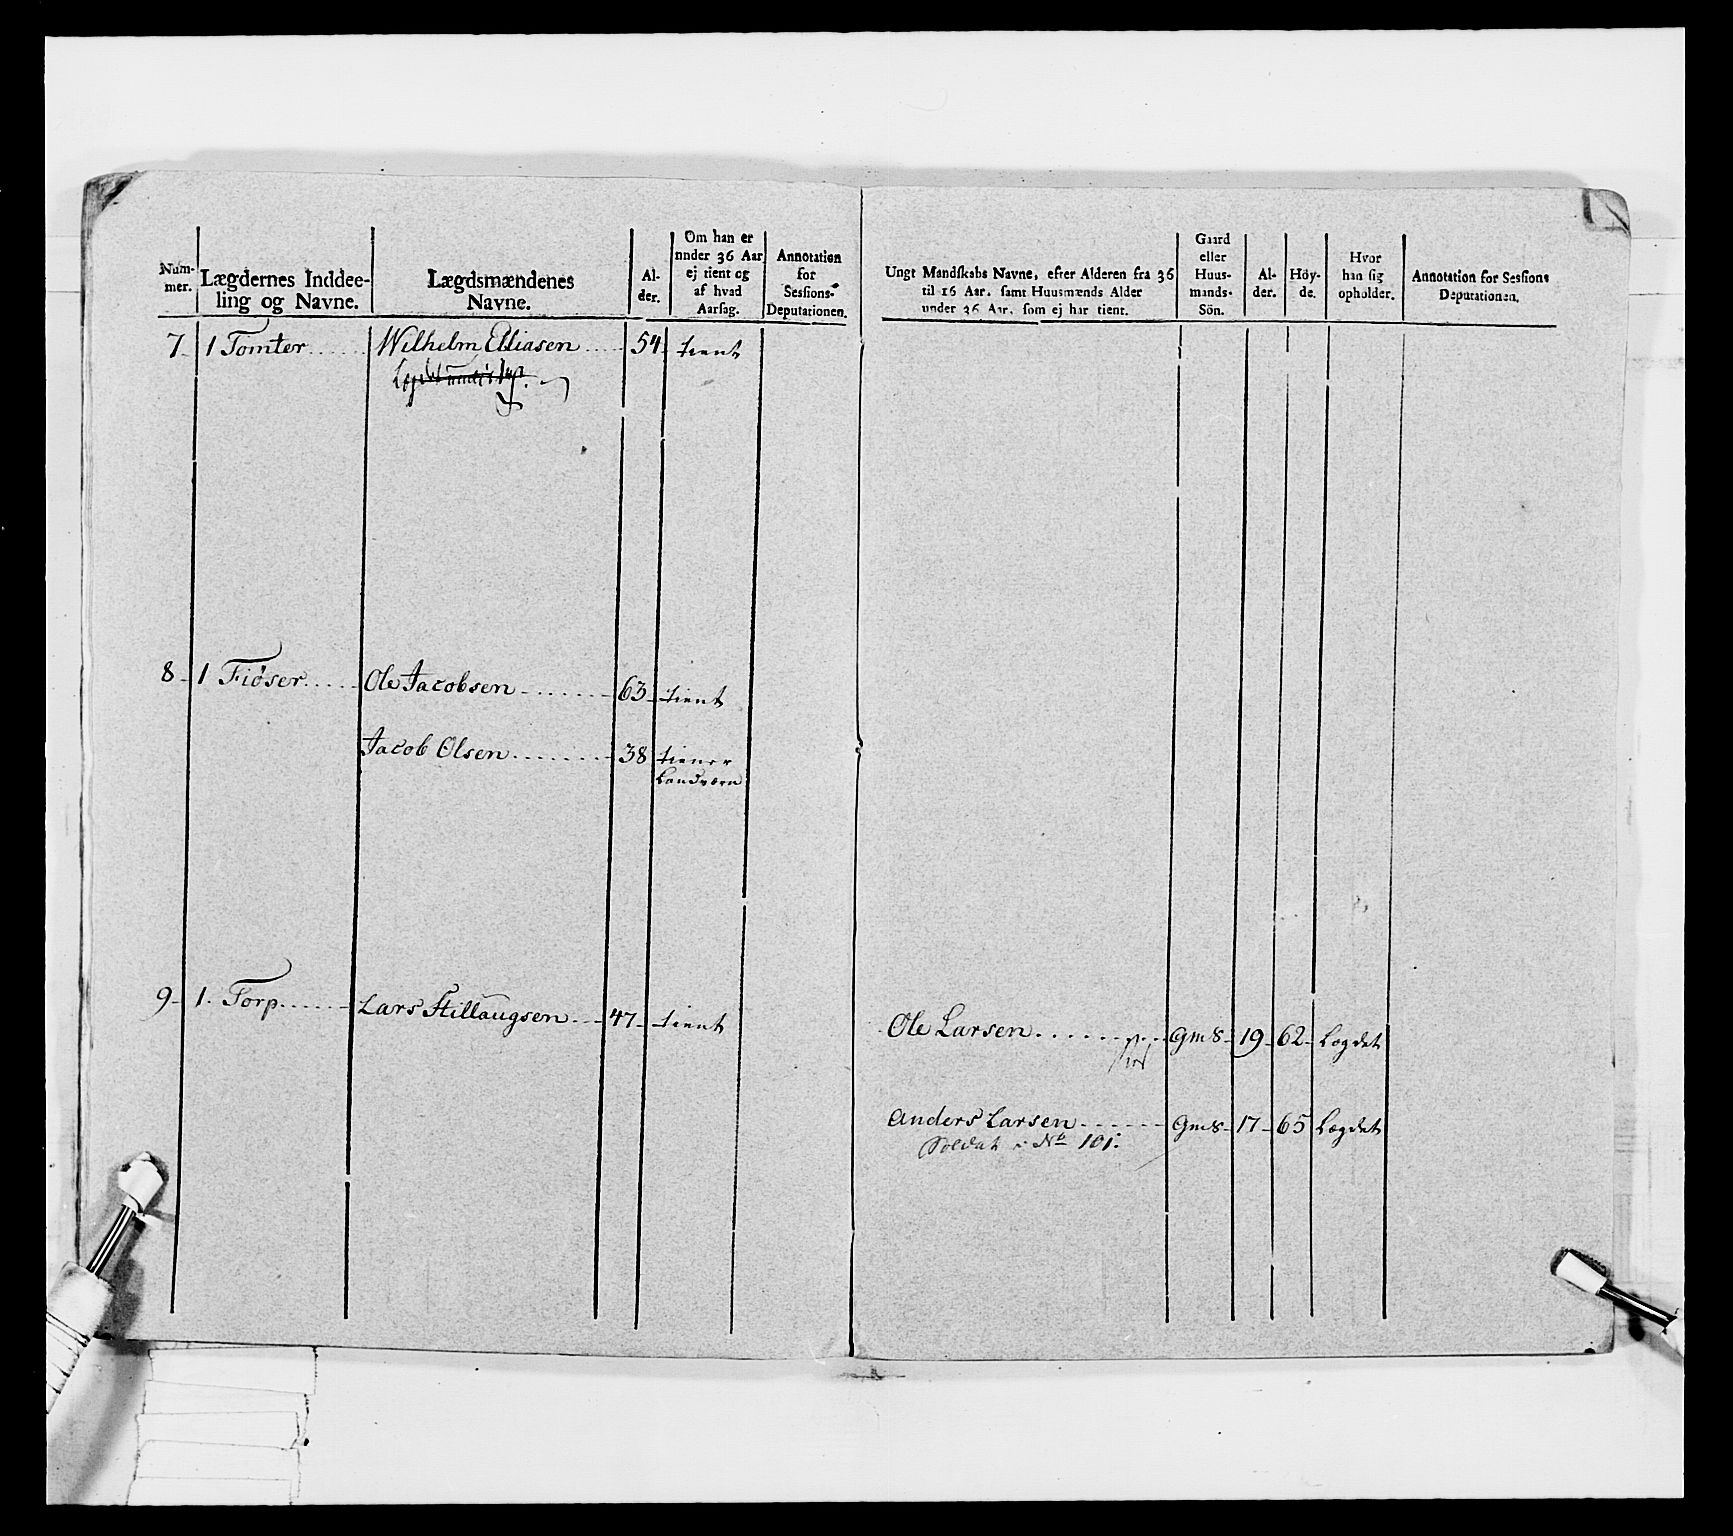 Num-
mer.
Lægdernes Inddee-
ling og Navne.
Lægdsmændenes
Navne.
Al-
der.
Om han er
nnder 36 Aar
ej tient og
af hvad
Aarsag.
Annotation
for
Sessions-
Deputationen.
Ungt Mandskabs Navne, efter Alderen fra 36
til 16 Aar, samt Huusmænds Alder
under 36 Aar, som ej har tient.
Gaard
eller
Huus-
mands-
Sön.
Al-
der.
Höy-
de.
Hvor
han sig
opholder.
Annotation for Sessions
Deputationen.
7 1 Tomter Wilhelm Elliasen 54 tient
8 1 Fiøser Ole Jacobsen 63 tient
Jacob Olsen 38 tiener
Landværn
9 1. Torp Lars Stillaugsen 47 tient
Ole Larsen GmS 19 62 Lægdet
Anders Larsen GmS 17 65 Lægdet
Soldat i No 101.